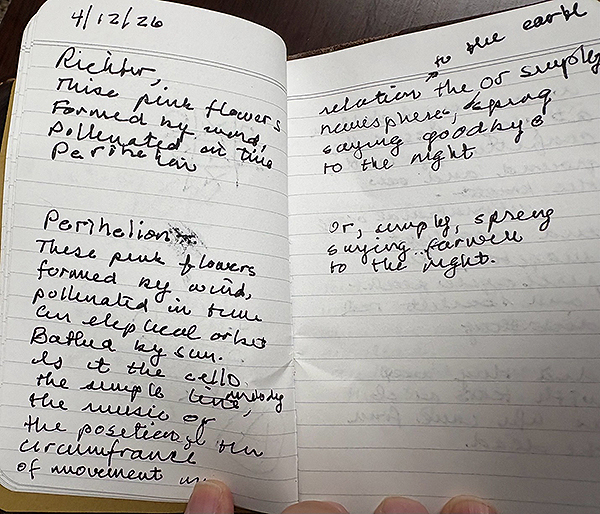 4/12/26
Richter,
These pink flowers
Formed by wind,
Pollenated in time
Perihelion
Perihelion
These pink flowers
formed by wind,
pollenated in time
an eleptical orbit
Bathed by sun.
Is it the cello
the simple line, melody
the music or
the position of the
circumfrance
of movement in
to the earth
relation the Or simply
hemispheres, spring
saying goodbye
to the night
Or, simply, spreng
saying farwell
to the night.